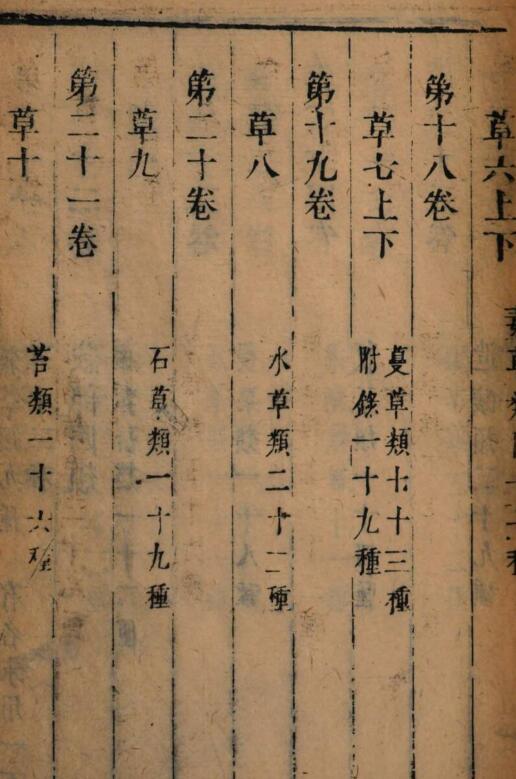 草六上下
第十八卷
草七上下 蔓草類七十三種
附錄一十九種
第十九卷
草八 水草類二十二種
第二十卷
草九 石草類一十九種
第二十一卷
草十 苔類一十六種